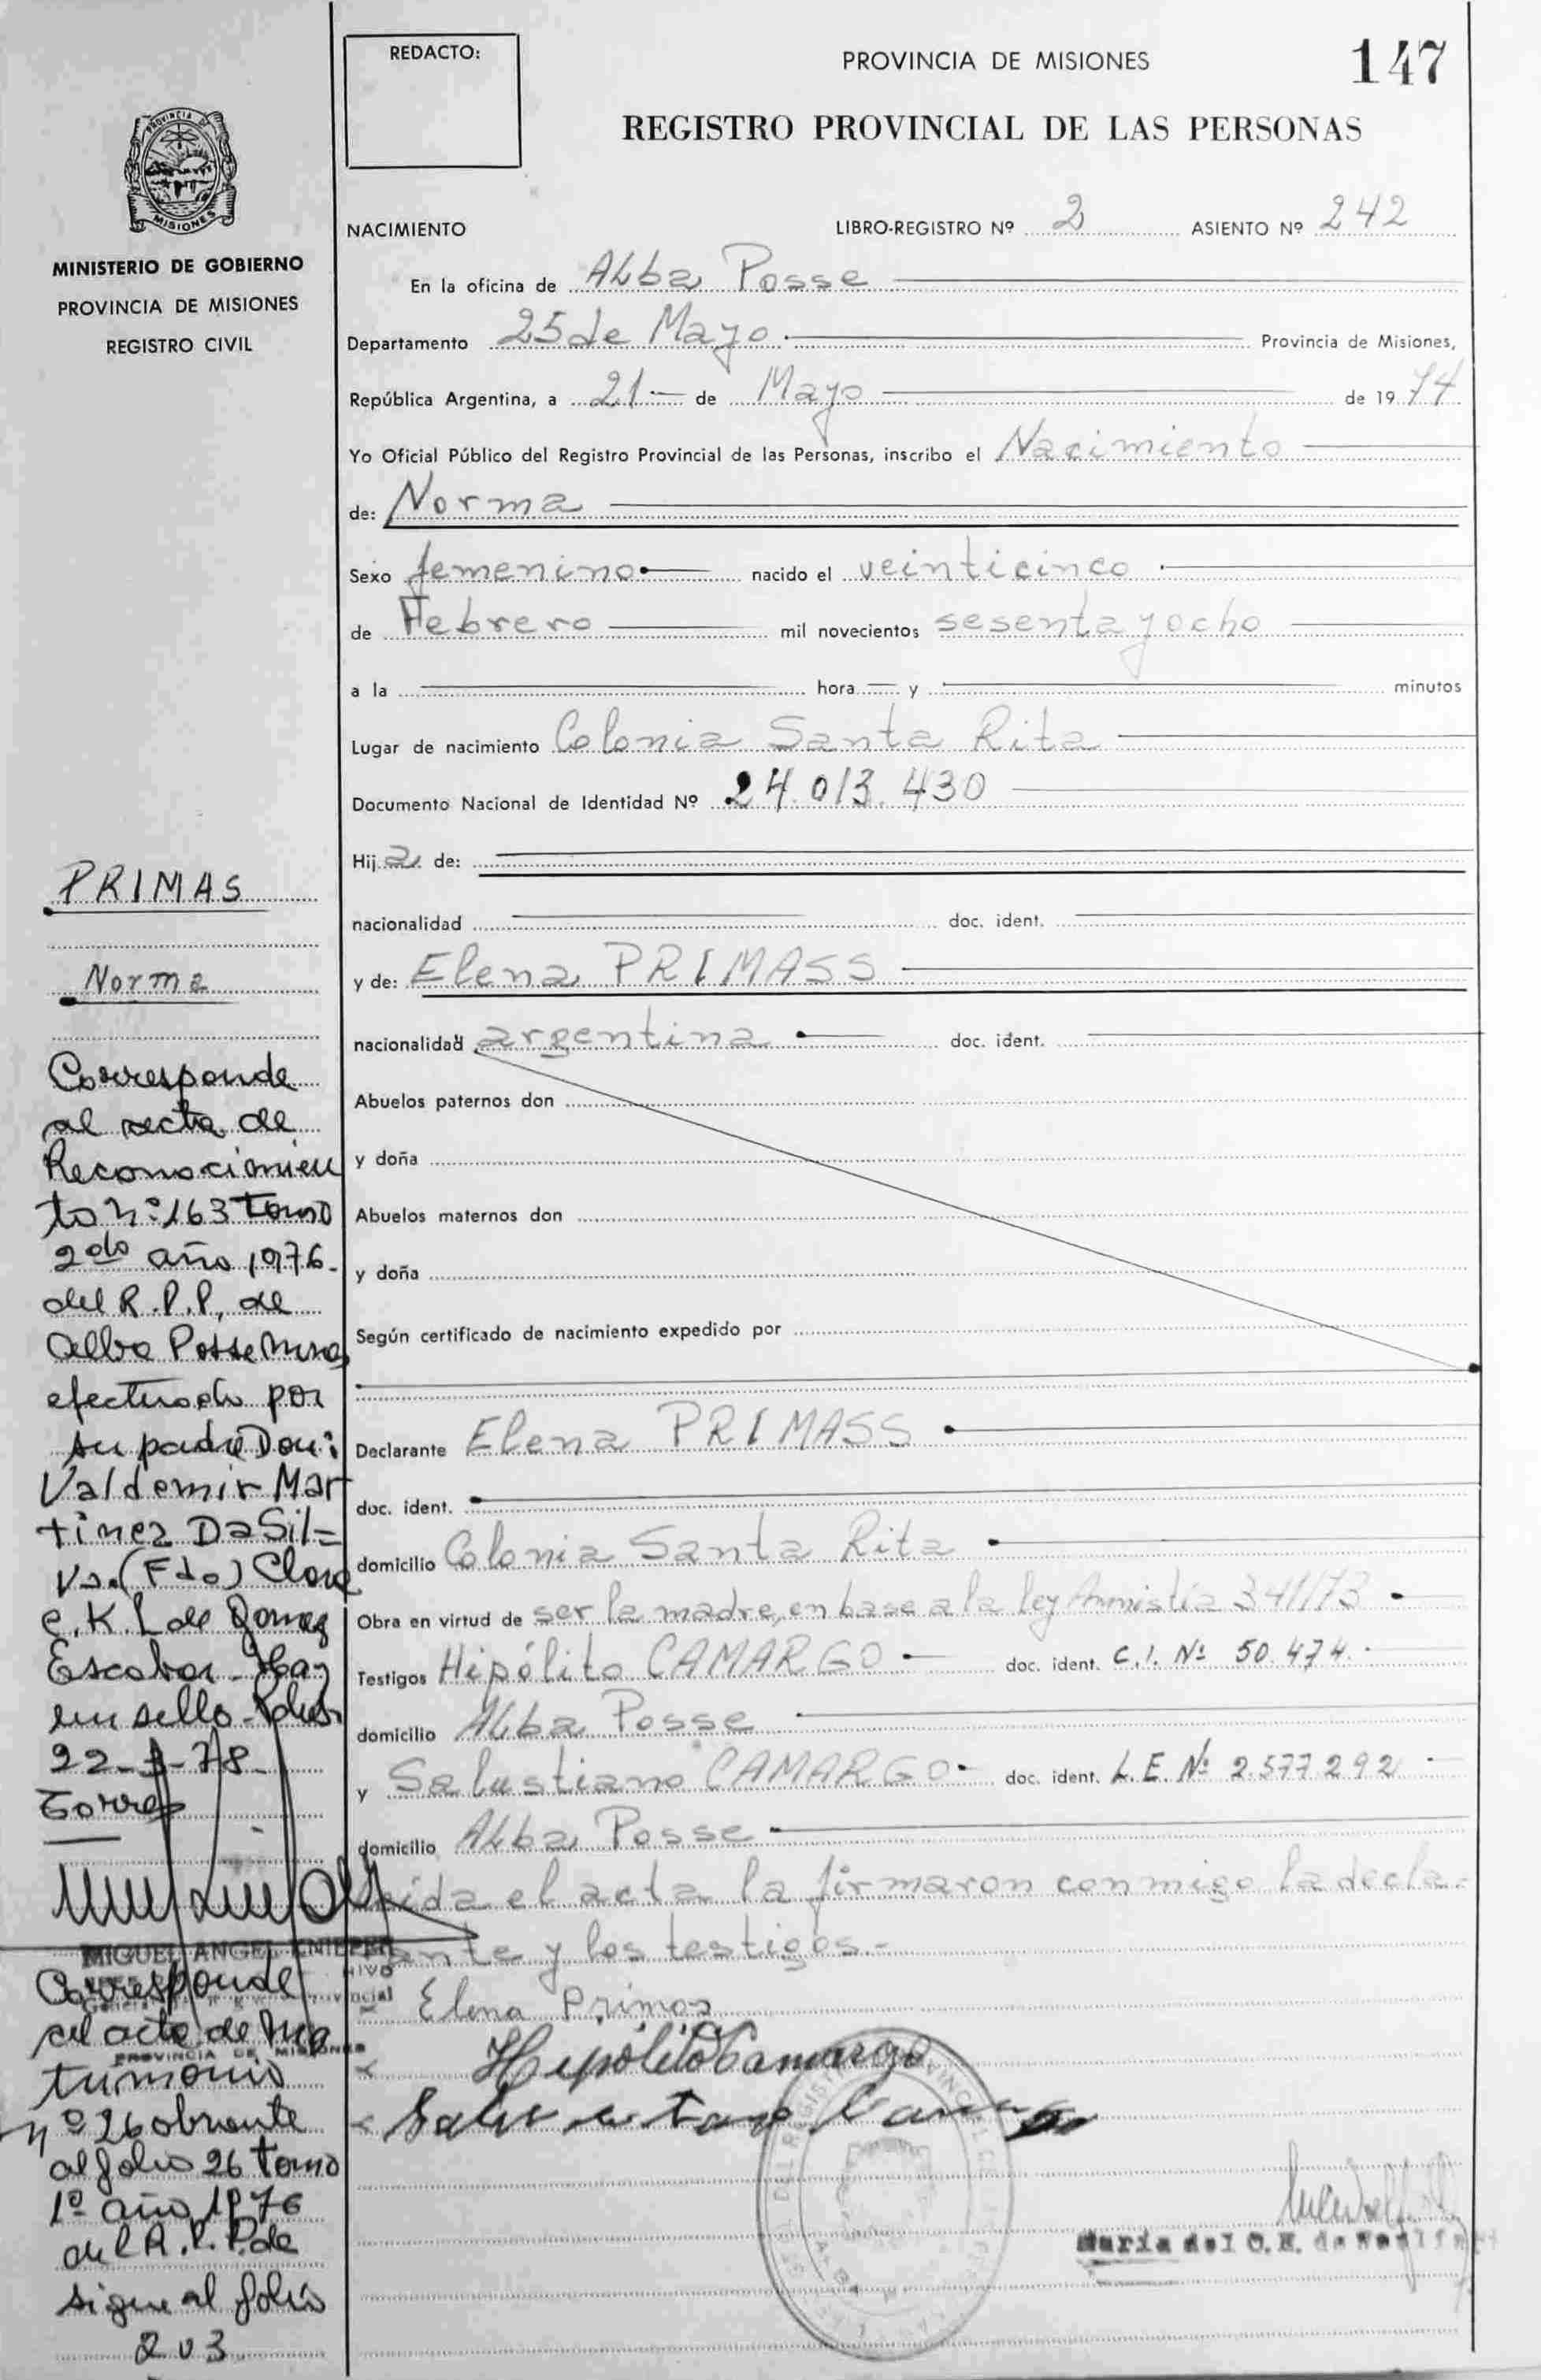 REDACTO:
PROVINCIA DE MISIONES
147
REGISTRO PROVINCIAL DE LAS PERSONAS
PROVINCIA DE
MISIONES
MINISTERIO DE GOBIERNO
PROVINCIA DE MISIONES
REGISTRO CIVIL
NACIMIENTO LIBRO-REGISTRO Nº 2 ASIENTO Nº 242
En la oficina de Alba Posse
Departamento 25 de Mayo Provincia de Misiones,
República Argentina, a 21 de Mayo de 1974
Yo Oficial Público del Registro Provincial de las Personas, inscribo el Nacimiento
de: Norma
Sexo femenino nacido el veinticinco
de Febrero mil novecientos sesenta y ocho
a la hora y minutos
Lugar de nacimiento Colonia Santa Rita
Documento Nacional de Identidad Nº 24.013.430
Hija de:
nacionalidad doc. ident.
y de: Elena PRIMASS
nacionalidad argentina doc. ident.
Abuelos paternos don
y doña
Abuelos maternos don
y doña
Según certificado de nacimiento expedido por
Declarante Elena PRIMASS
doc. ident.
domicilio Colonia Santa Rita
Obra en virtud de ser la madre, en base a la ley Amnistía 341/73
Testigos Hipólito CAMARGO doc. ident. C.I. Nº 50.474.-
domicilio Alba Posse
y Salustiano CAMARGO- doc. ident. L.E. Nº 2.577292
domicilio Alba Posse
Leida el acta la firmaron conmigo la decla-
rante y los testigos.-
Elena Primas
Hipólito Camargo
María del C.
PRIMAS
Norma
Corresponde
al acta de
Reconocimien
to nº 163 Tomo
2do año 1976.
del R.P.P. de
Alba Posse Mnes
efectuado por
su padre Don:
Valdemir Mar
tinez Da Sil=
va. (Fdo) Clara
e. K. L de Gomez
Escobar- Hay
un sello- Pdas.
22- -78-
Torres
MIGUEL ANGEL
PROVINCIA DE MISIONES
Corresponde
al acta de Ma
trimonio
nº 26 obrante
al folio 26 Tomo
1º año 1976
del R.P.P. de
sigue al folio
203